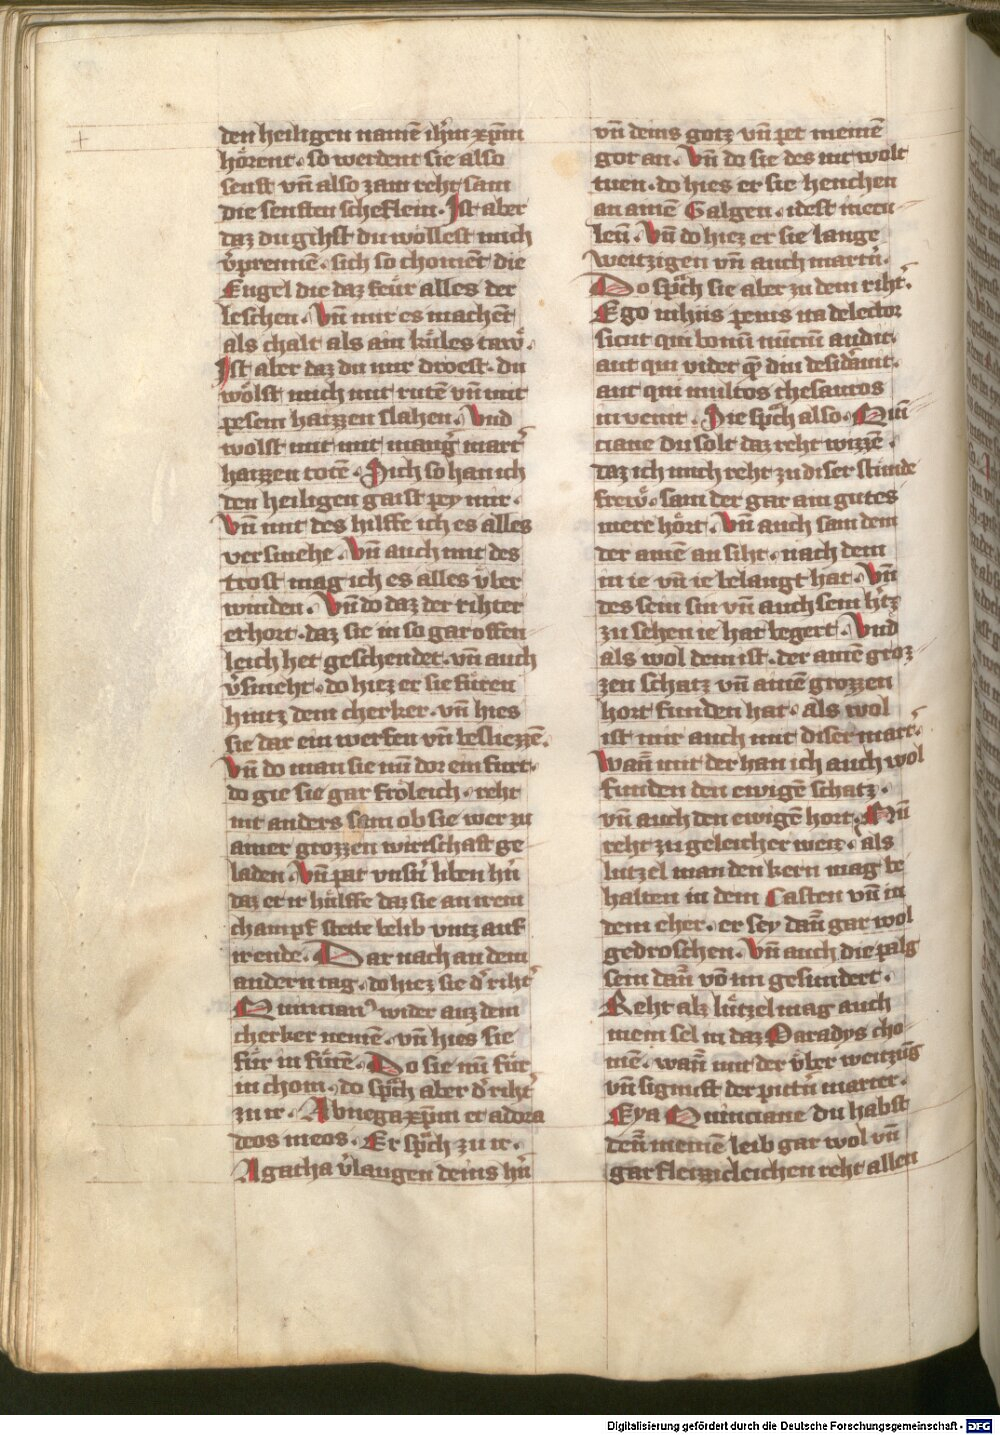 den heiligen namē ih̄m xp̄m
hörent · so werdent sie also
senft vn̄ also zam reht sam
die senften scheflein · Ist aber
daz du gihst du wöllest mich
v̓prennē · sich so choment die
Engel die daz feür alles der
leschen · Vn̄ mir es machēt
als chalt als ain küles taw̓
Ist aber daz du mir droest · du
wölst mich mit rutē vn̄ mit
pesem haizzen slahen · Vnd
wolst mit mit mang̓ mart̓
haizzen totē · Sich so han ich
den heiligen gaist pey mir ·
Vn̄ mit des hilffe ich es alles
versmehe · Vn̄ auch mit des
trost mag ich es alles v̈ber
winden · Vn̄ do daz der rihter
erhort · daz sie in so gar offen-
leich het geschendet · vn̄ auch
v̓smeht · do hiez er sie füren
hintz dem cherker · vn̄ hies
sie dar ein werfen vn̄ besliezzē ·
Vn̄ do man sie nū dor ein furt ·
do gie sie gar fröleich · reht
nit anders sam ob sie wer zu
ainer grozzen wirtschaft ge
laden · Vn̄ pat vnsn̓ liben hn̓
daz er ir hülffe daz sie an irem
champf stette belib vntz auf
ir ende · Dar nach an dem
andern tag · do hiez sie d̓ riht̓
Quincian̓ wider auz dem
cherker nemē · vn̄ hies sie
für in fürē · Do sie nū für
in chom · do sp̄ch aber d̓ riht̓
zu ir · Abnega xp̄m et adora
deos meos · Er sp̄ch zu ir ·
Agatha v̓laugen deins hn̓
vn̄ deins gotz vn̄ pet meinē
got an · Vn̄ do sie des nit wolt
tuen · do hies er sie henchen
an ainē Galgen · idest inecu-
leū · Vn̄ do hiez er sie lange
weitzigen vn̄ auch martn̓ ·
Do sp̄ch sie aber zu dem riht̓ ·
Ego in hiis penis ita delector
sicut qui bonū nūciū audit ·
aut qui videt q̄ diu desid̓auit ·
aut qui multos thesauros
inuenit · Sie sp̄ch also · Quī
ciane du solt daz reht wizzē ·
daz ich mich reht zu diser stunde
frew̓ · sam der gar ain gutes
mere hört · Vn̄ auch sam dem
der ainē an siht · nach dem
in ie vn̄ ie belangt hat · Vn̄
des sein sin vn̄ auch sein h̓tz
zu sehen ie hat begert · Vnd
als wol dem ist · der ainē groz-
zen schatz vn̄ ainē grozzen
hort funden hat · als wol
ist mir auch mit diser mart̓ ·
Wan̄ mit der han ich auch wol
funden den ewigē schatz ·
vn̄ auch den ewigē hort · Nū
reht zu geleicher weiz · als
lützel man den kern mag be
halten in dem Casten vn̄ in
dem cher · er sey dan̄ gar wol
gedroschen · Vn̄ auch die palg
sein dan̄ vō im gesundert ·
Reht alz lützel mag auch
mein sel in daz Paradys cho-
mē · wan̄ mit der v̈ber weitzūg
vn̄ signuft der pittn̓ marter ·
Eya Quinciane du habst
den̄ meinē leib gar wol vn̄
gar fleizzicleichen reht allen
Digitalisierung gefördert durch die Deutsche Forschungsgemeinschaft - DFG